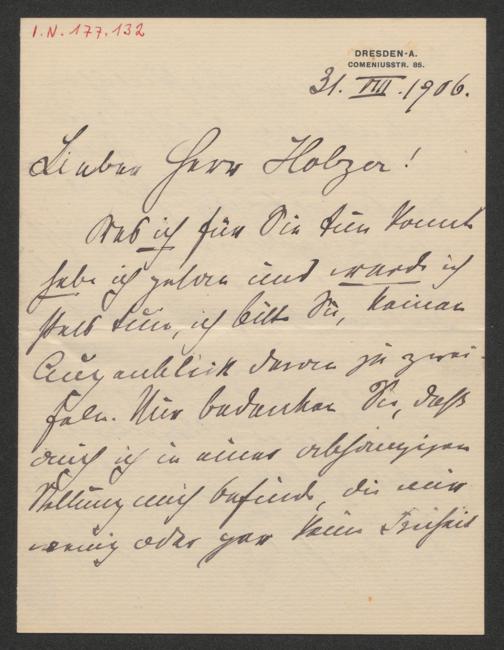 I.N. 177.132
DRESDEN-A.
COMENIUSSTR. 85.
31. VIII. 1906.
Lieber Herr Holzer!
Was ich für Sie tun konnte
habe ich getan und werde ich
stets tun, ich bitte Sie, keinen
Augenblick daran zu zwei-
feln. Nur bedenken Sie, daß
auch ich in einer abhängigen
Stellung mich befinde, die mir
wenig oder gar keine Freiheit